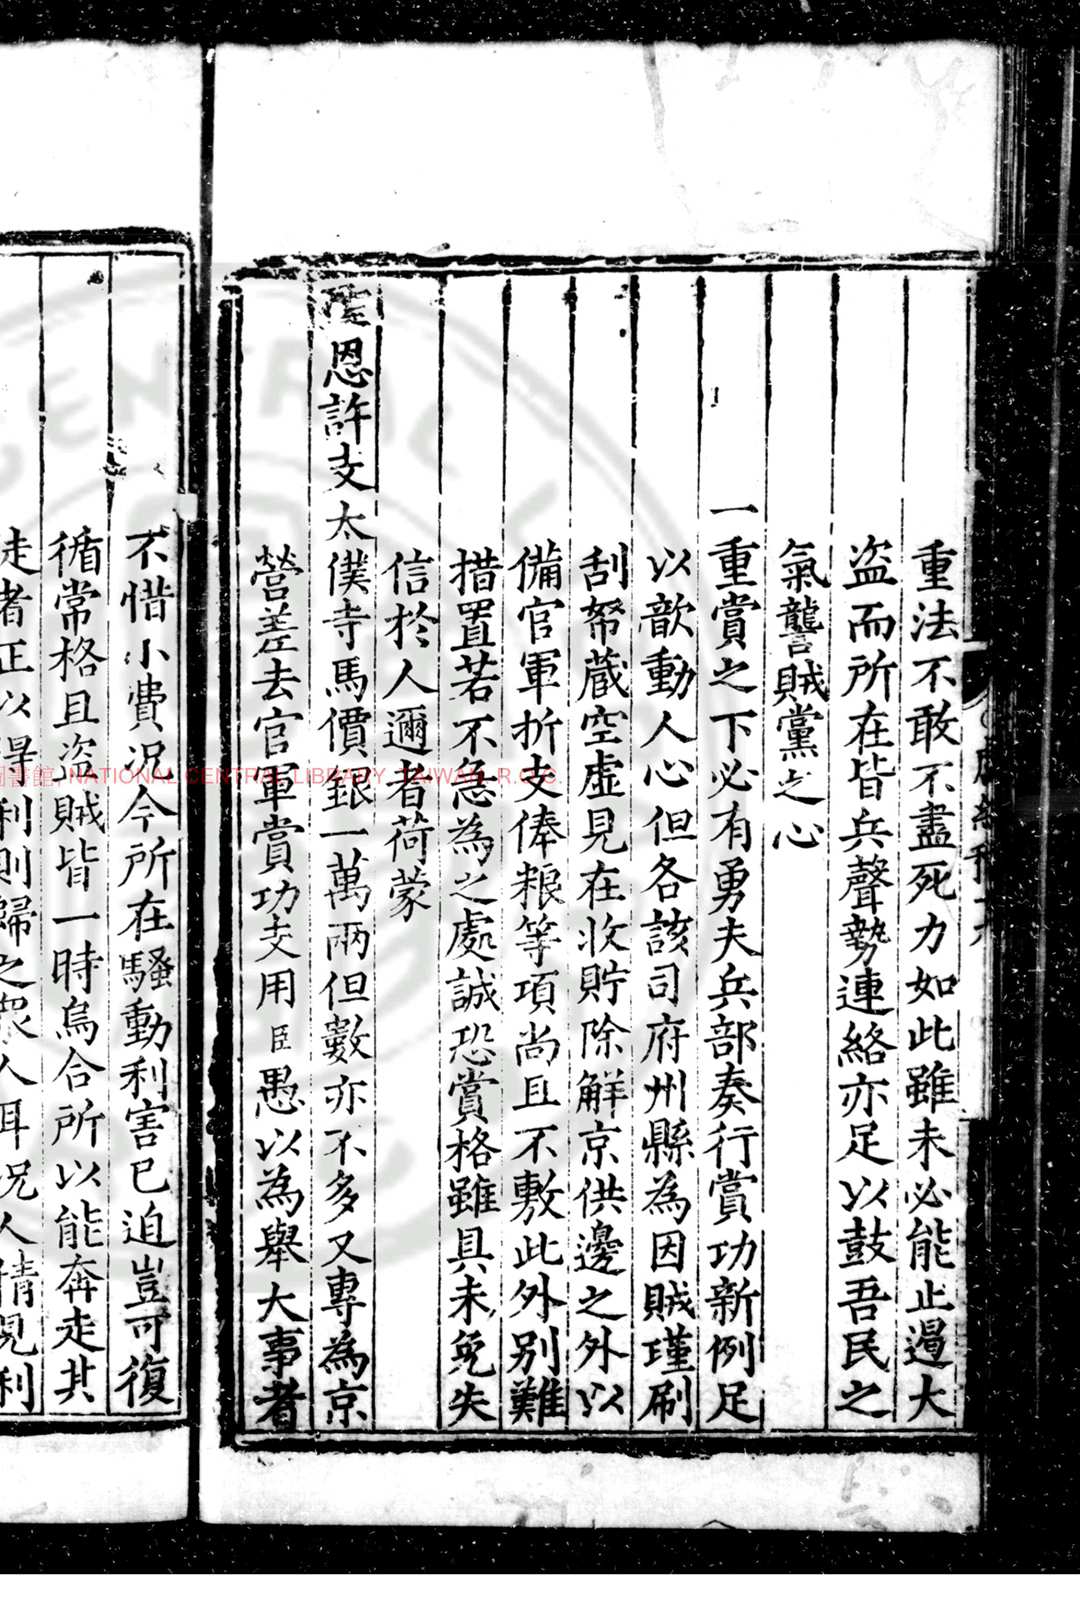 重法不敢不盡死力如此雖未必能止遏大
盗而所在皆兵聲勢連絡亦足以鼓吾民之
氣讋賊黨之心
一重賞之下必有勇夫兵部奏行賞功新例足
以歆動人心但各該司府州縣為因賊瑾刷
刮帑藏空虛見在收貯除解京供邊之外以
備官軍折支俸粮等項尚且不敷此外別難
措置若不急為之處誠恐賞格雖具未免失
信於人邇者荷蒙
恩許支太僕寺馬價銀一萬兩但數亦不多又專為京
營差去官軍賞功支用臣愚以為舉大事者
不惜小費况今所在騷動利害已迫豈可復
循常格且盗賊皆一時烏合所以能奔走其
走者正以得利則歸之眾人耳况人情見利
圖書館, NATIONAL CENTRAL LIBRARY, TAIWAN, R.O.C.